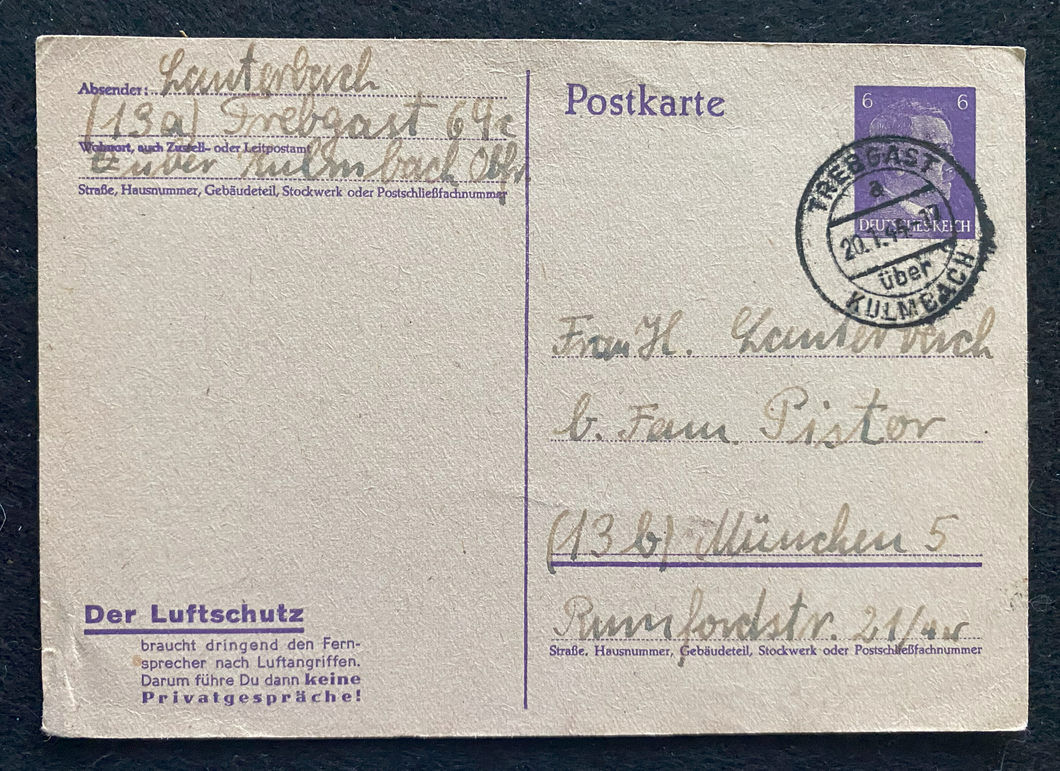 Absender: Lauterbach
(13a) Trebgast 64c
Wohnort, auch Zustell- oder Leitpostamt
über Kulmbach Obfr.
Straße, Hausnummer, Gebäudeteil, Stockwerk oder Postschließfachnummer
Der Luftschutz
braucht dringend den Fern-
sprecher nach Luftangriffen.
Darum führe Du dann keine
Privatgespräche!
Postkarte
6 6
DEUTSCHES REICH
TREBGAST
a
20.1.45.-17
über
KULMBACH
Frau H. Lauterbach
b. Fam. Pistor
(13b) München 5
Rumfordstr. 21/
Straße, Hausnummer, Gebäudeteil, Stockwerk oder Postschließfachnummer